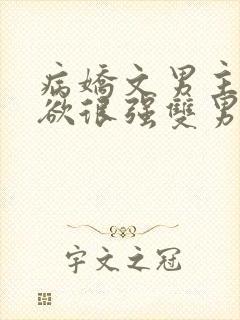 病嬌文男主
欲很强雙男
宇文之冠